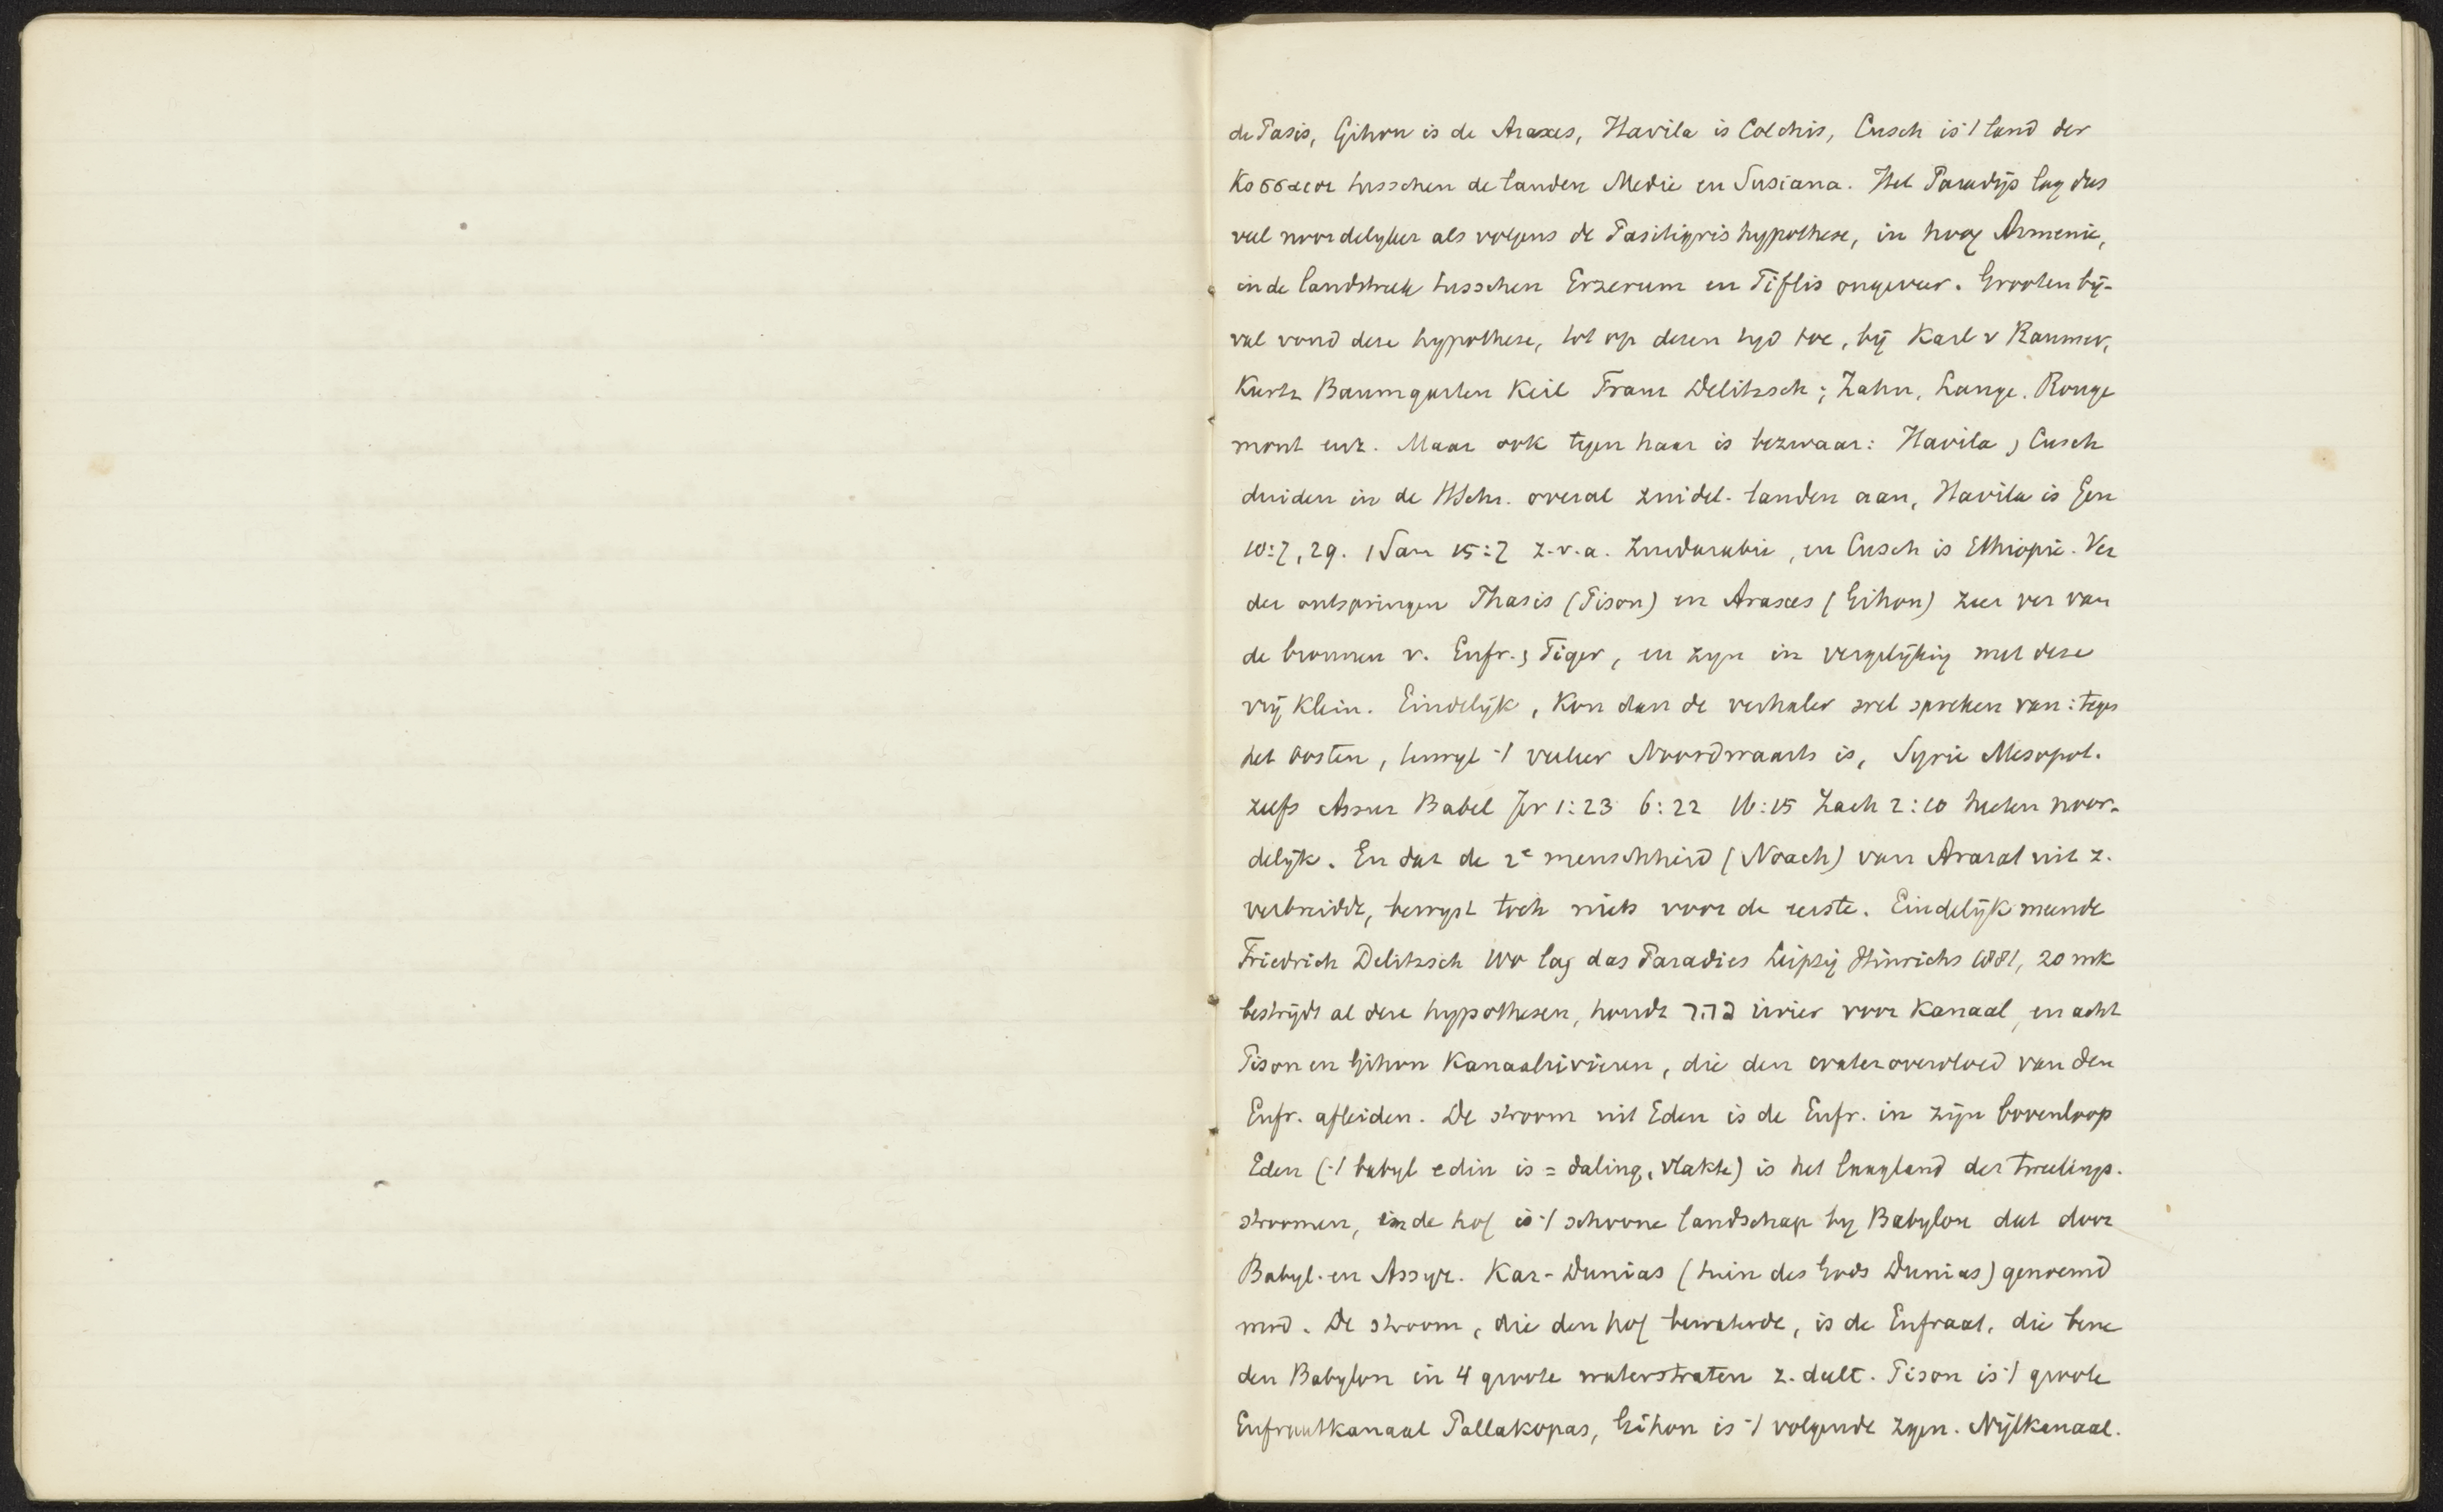 de Pasis, Gihon is de Araxes, Havila is Colchis, Cusch is 't land der
Κοσσαιοι tusschen de landen Medie en Susiana. Het Paradijs lag dus
veel noordelyker als volgens de Pasitigris hypothese, in hoog Armenie,
in de landstreek tusschen Erzerum en Tiflis ongeveer. Grooten bij-
val vond deze hypothese, tot op dezen tyd toe, bij Karl v Raumer,
Kurtz Baumgarten Keil Franz Delitzsch; Zahn, Lange. Rouge
mont enz. Maar ook tegen haar is bezwaar: Havila, Cusch
duiden in de HSchr. overal zuidel. landen aan, Havila is Gen
10:7, 29. 1 Sam 15:7 z.v.a. Zuidarabie, en Cusch is Ethiopie. Ver
der ontspringen Phasis (Pison) en Araxes (Gihon) zeer ver van
de bronnen v. Eufr., Tiger, en zyn in vergelijking met deze
vrij klein. Eindelijk, kon dan de verhaler wel spreken van: tegen
het Oosten, terwyl 't veeleer Noordwaarts is, Syrie Mesopot.
zelfs Assur Babel Jer 1:23 6:22 16:15 Zach 2:10 heeten noor-
delijk. En dat de 2e menschheid (Noach) van Ararat uit z.
verbreidde, bewyst toch niets voor de eerste. Eindelijk meende
Friedrich Delitzsch Wo lag das Paradies Leipzig Hinrichs 1881, 20 mk
bestrijdt al deze hypothesen, houdt נהר voor Kanaal, en acht
Pison en Gihon Kanaalrivieren, die den waterovervloed van den
Eufr. afleiden. De stroom uit Eden is de Eufr. in zijn bovenloop
Eden ('t babyl edin is = daling, vlakte) is het laagland der tweelings.
stroomen, de hof is 't schoone landschap by Babylon dat door
Babyl. en Assyr. Kar-Dunias (tuin des Gods Dunias) genoemd
werd. De stroom, die den hof bewaterde, is de Eufraat, die bene
den Babylon in 4 groote waterstraten z. deelt. Pison is 't groote
Eufraatkanaal Pallakopas, Gihon is 't volgende zgen. Nijlkanaal.